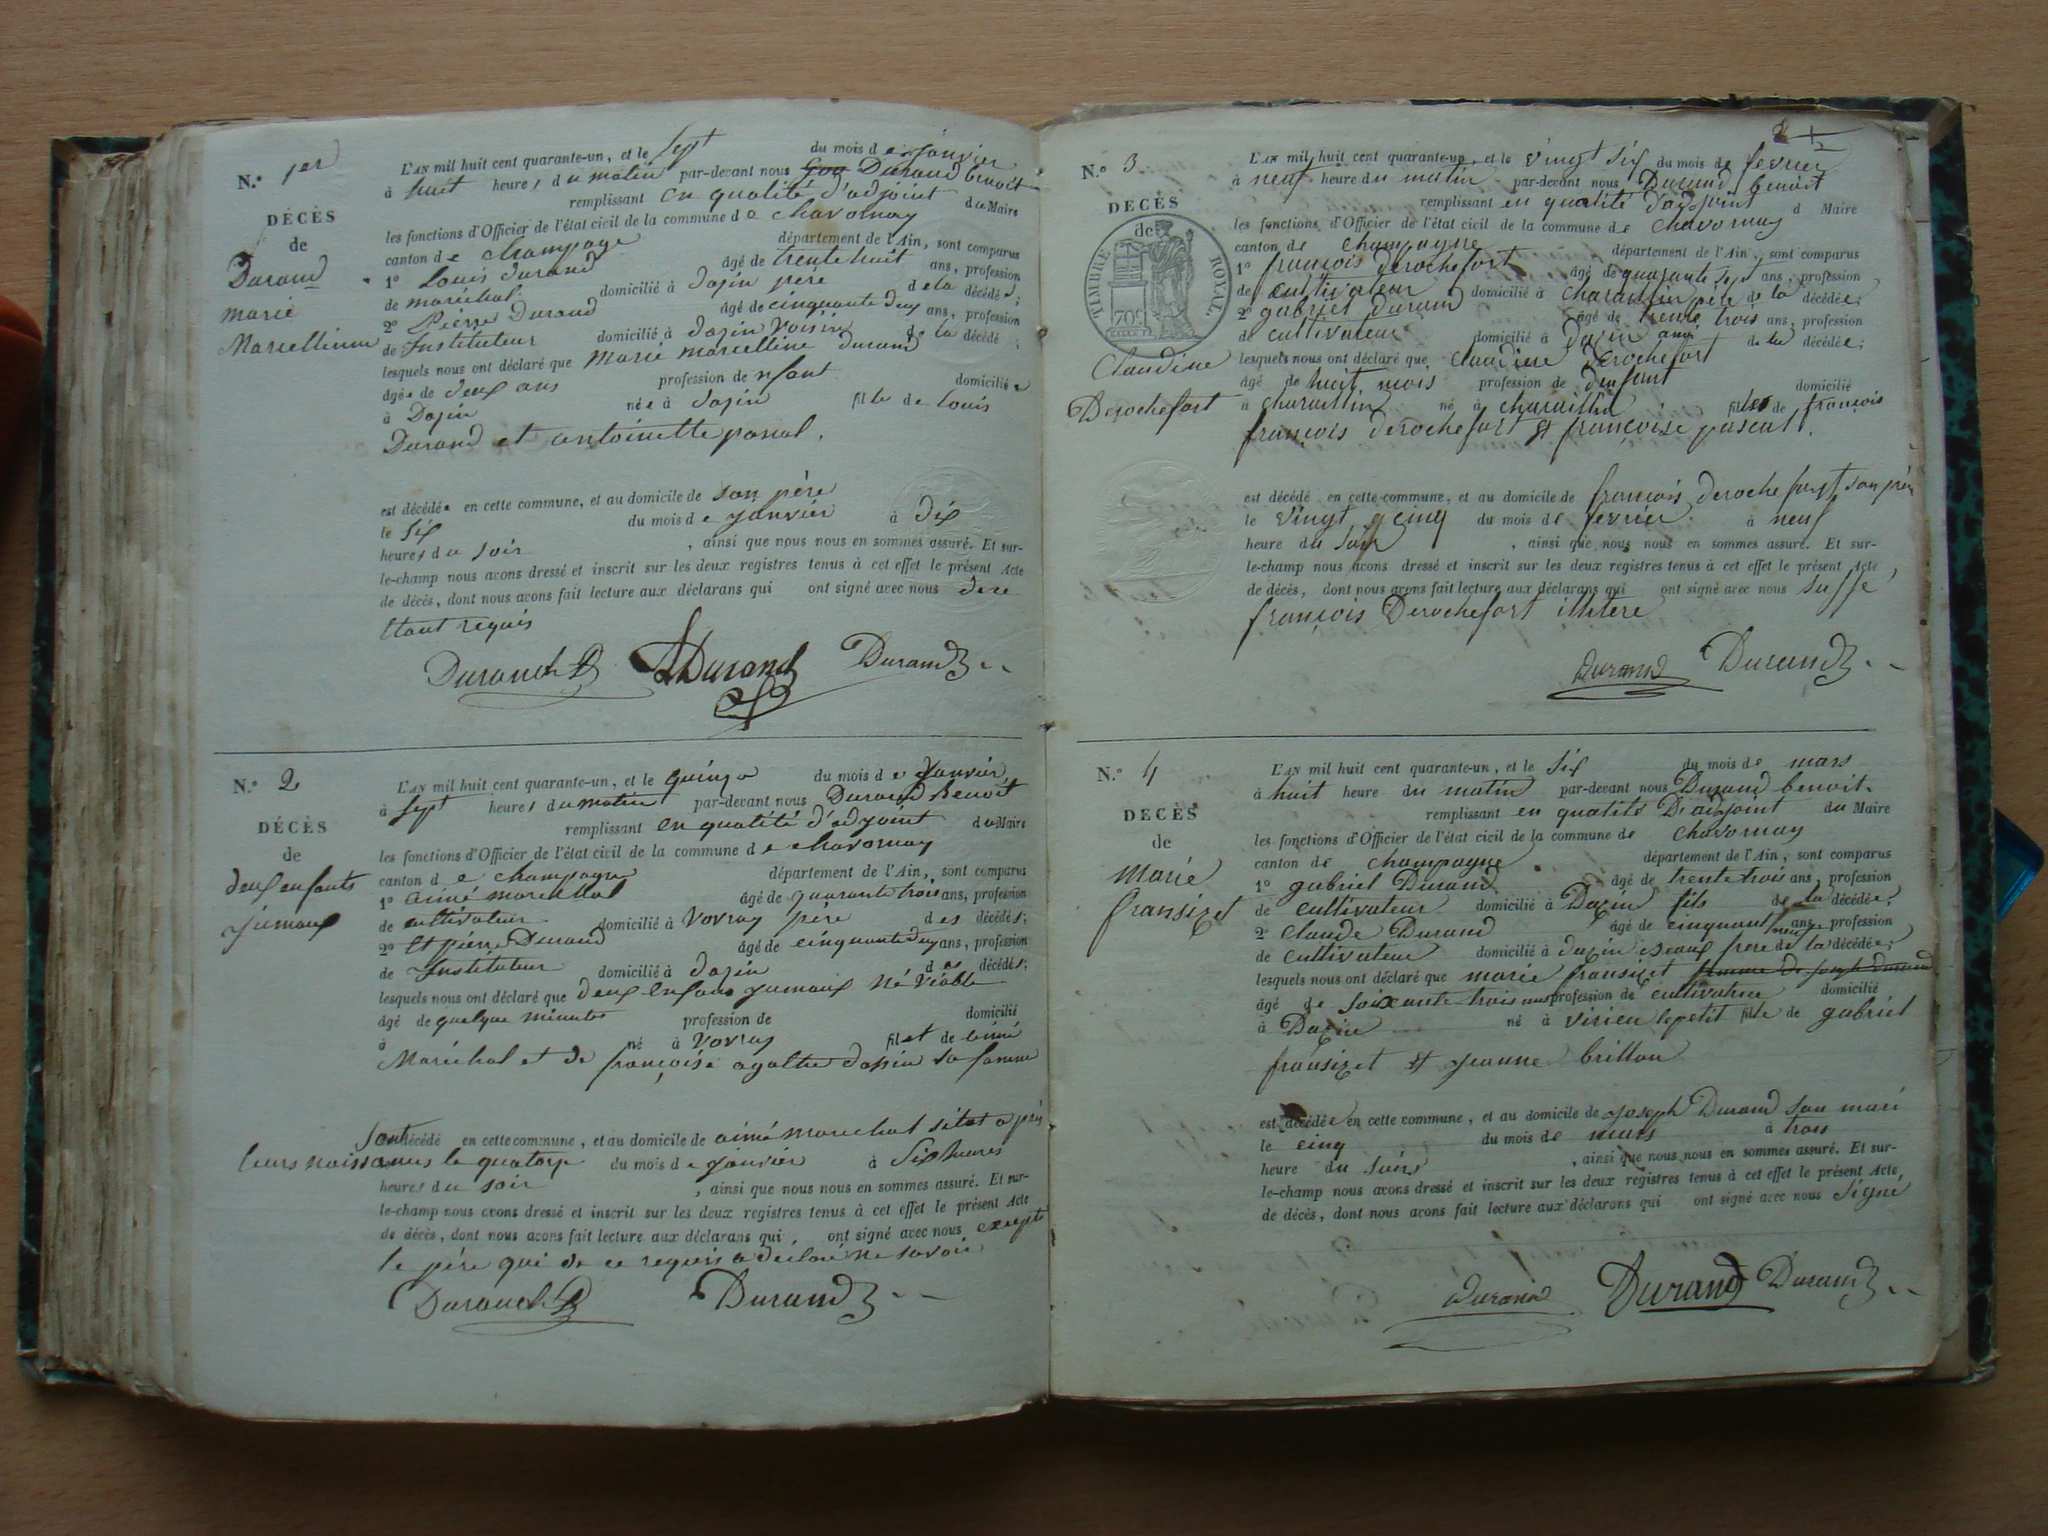 N.° 1er
DÉCÈS
de
Durand
marie
Marcelline
L'AN mil huit cent quarante-un, et le sept du mois de janvier
à huit heures du matin par-devant nous Durand benoit
remplissant en qualité d'adjoint du Maire
les fonctions d'Officier de l'état civil de la commune de chavornay
canton de champagne département de l'Ain, sont comparus
1° Louis durand âgé de trente huit ans, profession
de maréchal domicilié à dazin père de la décédée;
2° Pierre Durand âgé de cinquante deux ans, profession
de Instituteur domicilié à dazin voisin de la décédé ;
lesquels nous ont déclaré que Marie marcelline durand
âgée de deux ans profession de nfant domiciliée
à Dazin née à dazin fille de louis
Durand et antoinette pascal.
est décédée en cette commune, et au domicile de son père
le six du mois de janvier à dix
heures du soir , ainsi que nous nous en sommes assuré. Et sur-
le-champ nous avons dressé et inscrit sur les deux registres tenus à cet effet le présent Acte
de décès, dont nous avons fait lecture aux déclarans qui ont signé avec nous de ce
Etant requis
Durand Durand Durand
N.° 2
DÉCÈS
de
deux enfants
jumaux
L'AN mil huit cent quarante-un, et le quinze du mois de Janvier
à sept heures du matin par-devant nous Durand Benoit
remplissant en qualité d'adjoint du Maire
les fonctions d'Officier de l'état civil de la commune de chavornay
canton de champagne département de l'Ain, sont comparus
1° aimé marechal âgé de quarante trois ans, profession
de cultivateur domicilié à Vovray père des décédés;
2° Et pierre Durand âgé de cinquante deux ans, profession
de Instituteur domicilié à dazin des décédés;
lesquels nous ont déclaré que deux enfans jumaux né viable
âgé de quelque minutes profession de domicilié
à né à Vovray fils et de aimé
Maréchal et de françoise agathe dassin sa femme
sont décédé en cette commune, et au domicile de aimé marechal sitot après
leurs naissances le quatorze du mois de janvier à six heures
heures du soir , ainsi que nous nous en sommes assuré. Et sur-
le-champ nous avons dressé et inscrit sur les deux registres tenus à cet effet le présent Acte
de décès, dont nous avons fait lecture aux déclarans qui ont signé avec nous excepté
le père qui de ce requis a declaré ne savoir
Durand Durand
2 1/2
N.° 3
DÉCÈS
de
TIMBRE ROYAL
70c
Claudine
Derochefort
L'AN mil huit cent quarante-un, et le vingt six du mois de fevrier
à neuf heure du matin par-devant nous Durand benoit
remplissant en qualité dadjoint d Maire
les fonctions d'Officier de l'état civil de la commune de chavornay
canton de champagne département de l'Ain, sont comparus
1° françois derochefort âgé de quarante sept ans, profession
de cultivateur domicilié à charaillin père de la décédée;
2° gabriel durand âgé de trente trois ans, profession
de cultivateur domicilié à Dazin ami de la décédée;
lesquels nous ont déclaré que claudine derochefort
âgé de huit mois profession de denfant domicilié
à charaillin né à charaillin fille de françois
françois derochefort et françoise pascal.
est décédé en cette commune, et au domicile de françois derochefort son père
le vingt cinq du mois de fevrier à neuf
heure du soir , ainsi que nous nous en sommes assuré. Et sur-
le-champ nous avons dressé et inscrit sur les deux registres tenus à cet effet le présent Acte
de décès, dont nous avons fait lecture aux déclarans qui ont signé avec nous
françois Derochefort illitere
Durand Durand
N.° 4
DÉCÈS
de
Marie
fransizet
L'AN mil huit cent quarante-un, et le six du mois de mars
à huit heure du matin par-devant nous Durand benoit
remplissant en qualité D'adjoint du Maire
les fonctions d'Officier de l'état civil de la commune de chavornay
canton de champagne département de l'Ain, sont comparus
1° gabriel Durand âgé de trente trois ans, profession
de cultivateur domicilié à Dazin fils de la décédée;
2° claude Durand âgé de cinquant neuf ans, profession
de cultivateur domicilié à dazin beaux frere de la décédée;
lesquels nous ont déclaré que marie fransizet femme de joseph durand
âgé de soixante trois ans profession de cultivatrice domicilié
à Dazin né à virieu lepetit fille de gabriel
fransizet et jeanne brillon
est décédée en cette commune, et au domicile de joseph Durand son mari
le cinq du mois de mars à trois
heure du soir , ainsi que nous nous en sommes assuré. Et sur-
le-champ nous avons dressé et inscrit sur les deux registres tenus à cet effet le présent Acte,
de décès, dont nous avons fait lecture aux déclarans qui ont signé avec nous signé
Durand Durand Durand